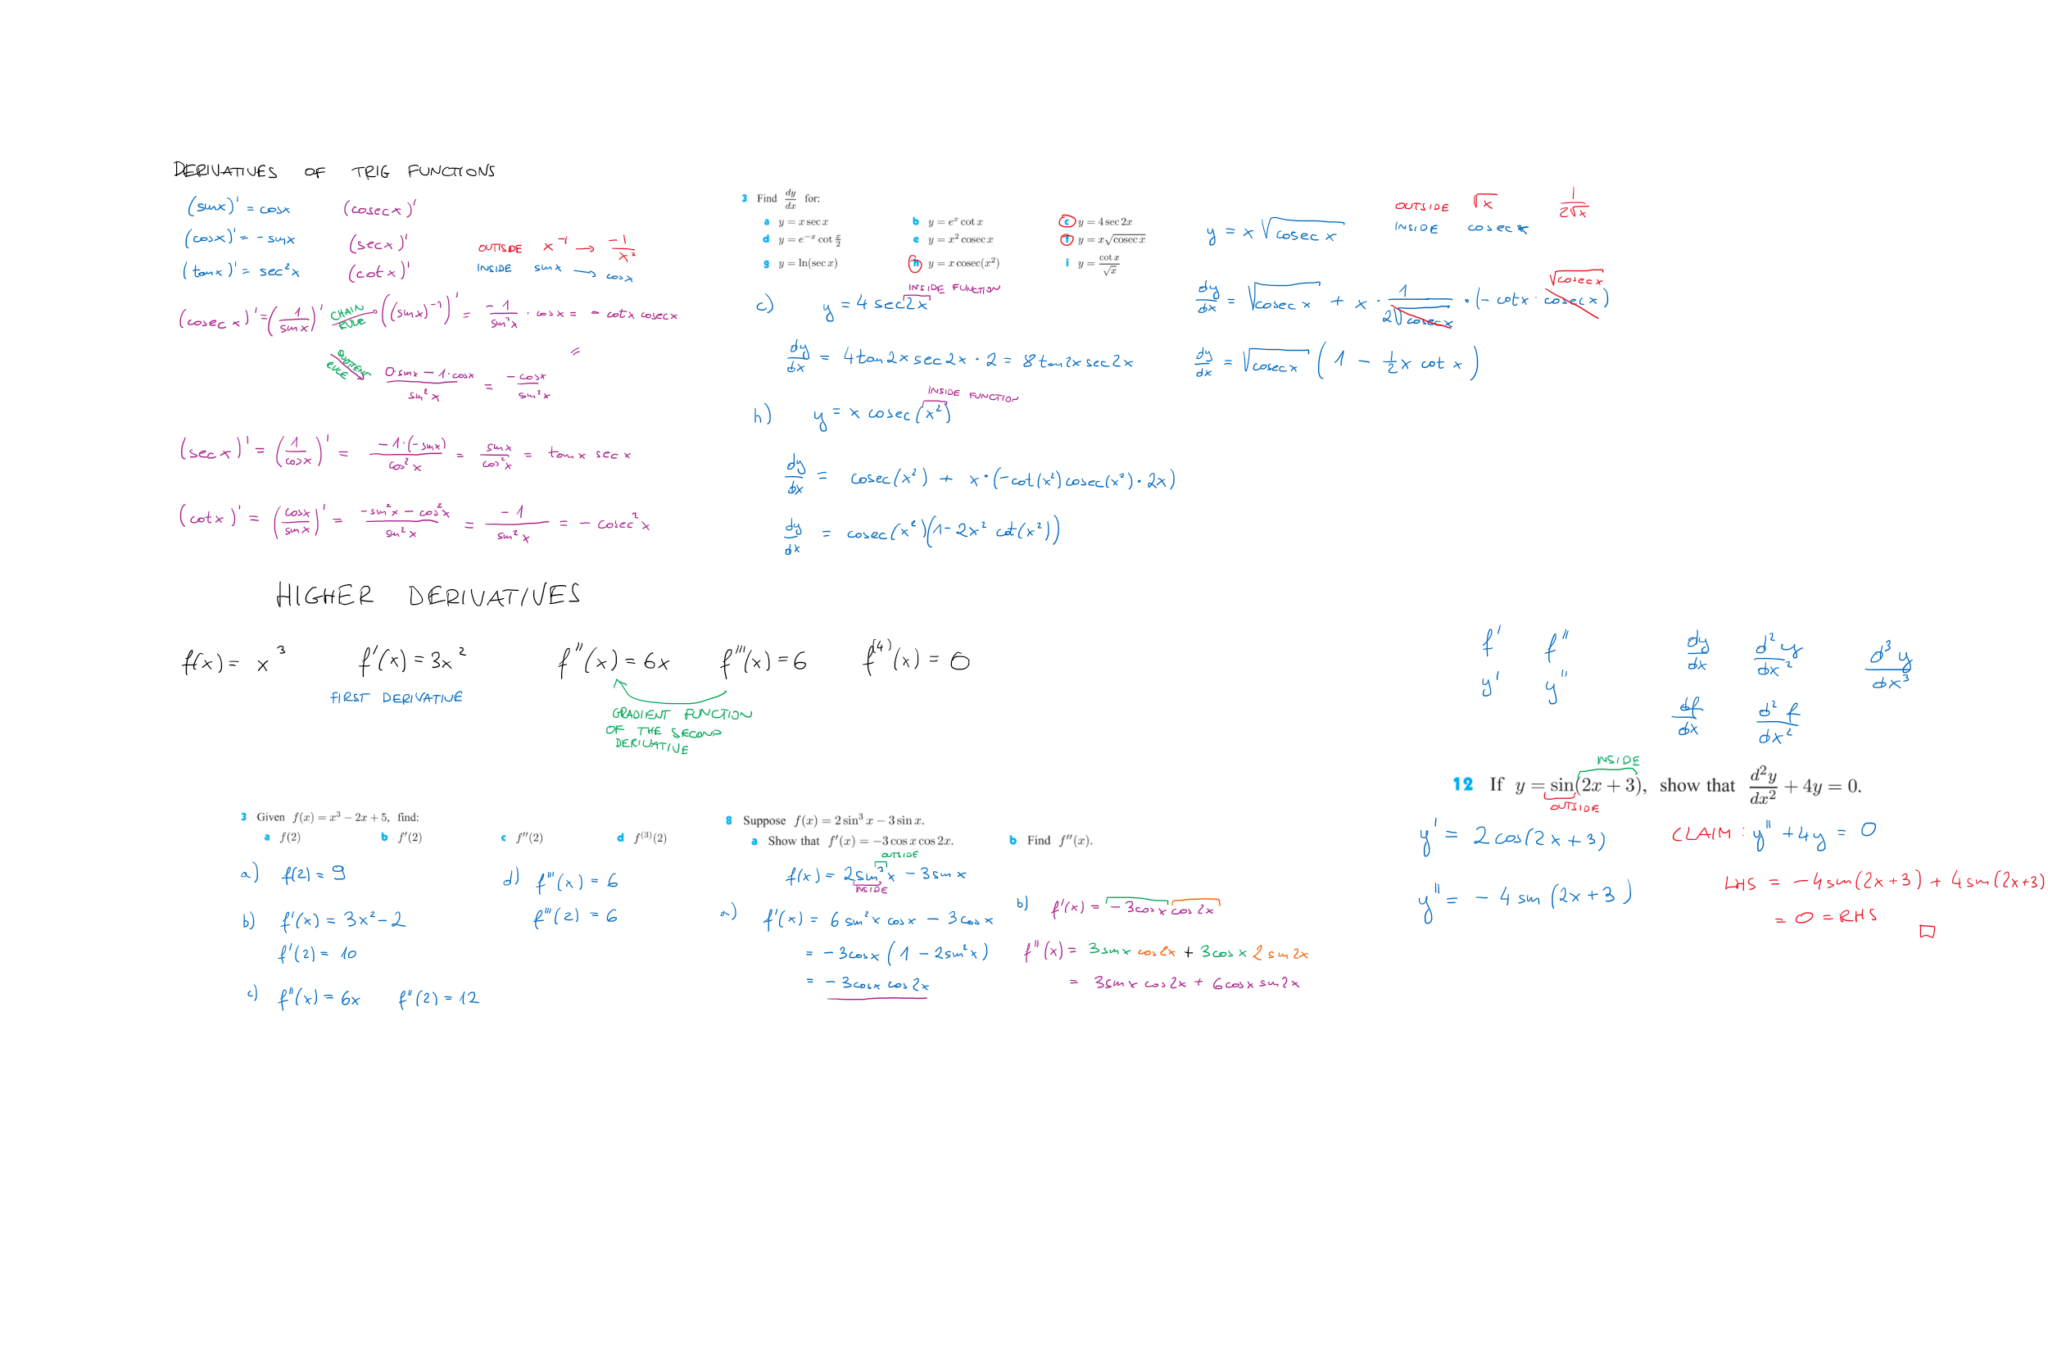 DERIVATIVES OF TRIG FUNCTIONS
(sinx)' = cosx (cosecx)'
(cosx)' = -sinx (secx)'
(tanx)' = sec²x (cotx)'
OUTSIDE x⁻¹ → -1/x²
INSIDE sinx → cosx
(cosecx)' = (1/sinx)' CHAIN RULE ((sinx)⁻¹)' = -1/sin²x · cosx = - cotx cosecx
QUOTIENT RULE (0·sinx - 1·cosx)/sin²x = -cosx/sin²x
=
(secx)' = (1/cosx)' = -1·(-sinx)/cos²x = sinx/cos²x = tanx secx
(cotx)' = (cosx/sinx)' = (-sin²x - cos²x)/sin²x = -1/sin²x = - cosec²x
3 Find dy/dx for:
a y = x sec x b y = eˣ cot x c y = 4 sec 2x
d y = e⁻ˣ cot x/2 e y = x² cosec x f y = x√cosec x
g y = ln(sec x) h y = x cosec(x²) i y = cot x/√x
INSIDE FUNCTION
c) y = 4 sec2x
dy/dx = 4tan2x sec2x · 2 = 8tan2x sec2x
INSIDE FUNCTION
h) y = x cosec(x²)
dy/dx = cosec(x²) + x·(-cot(x²)cosec(x²)·2x)
dy/dx = cosec(x²)(1-2x² cot(x²))
OUTSIDE √x 1/2√x
INSIDE cosecx
y = x√cosecx
√cosecx
dy/dx = √cosecx + x · 1/2√cosecx · (-cotx·cosecx)
dy/dx = √cosecx (1 - ½x cotx)
HIGHER DERIVATIVES
f(x) = x³ f'(x) = 3x² f''(x) = 6x f'''(x) = 6 f⁽⁴⁾(x) = 0
FIRST DERIVATIVE
GRADIENT FUNCTION
OF THE SECOND
DERIVATIVE
f' f'' dy/dx d²y/dx² d³y/dx³
y' y'' df/dx d²f/dx²
3 Given f(x) = x³ − 2x + 5, find:
a f(2) b f'(2) c f''(2) d f⁽³⁾(2)
a) f(2) = 9
b) f'(x) = 3x²-2
f'(2) = 10
c) f''(x) = 6x f''(2) = 12
d) f'''(x) = 6
f'''(2) = 6
8 Suppose f(x) = 2 sin³ x − 3 sin x.
a Show that f'(x) = −3 cos x cos 2x. b Find f''(x).
OUTSIDE
f(x) = 2sin³x - 3sinx
INSIDE
a) f'(x) = 6 sin²x cosx - 3cosx
= -3cosx (1 - 2sin²x)
= -3cosx cos2x
b) f'(x) = -3cosx cos2x
f''(x) = 3sinx cos2x + 3cosx 2sin2x
= 3sinx cos2x + 6cosx sin2x
INSIDE
12 If y = sin(2x + 3), show that d²y/dx² + 4y = 0.
OUTSIDE
y' = 2cos(2x+3)
y'' = -4sin(2x+3)
CLAIM: y'' + 4y = 0
LHS = -4sin(2x+3) + 4sin(2x+3)
= 0 = RHS
□